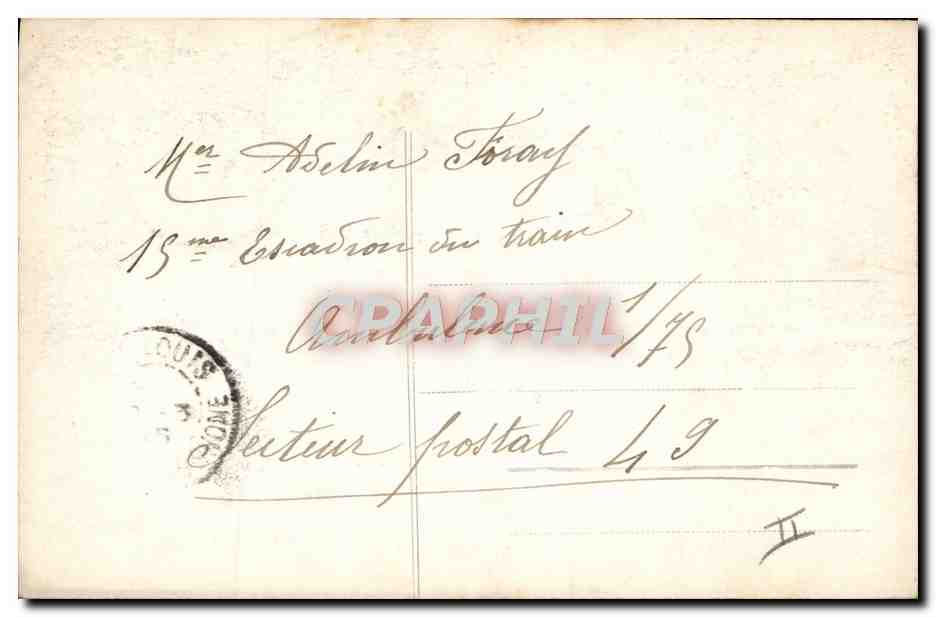 Mer Adelin Foray
15me Escadron du train
Ambulance 1/75
CPAPHIL
LOUIS
Secteur postal 49
II